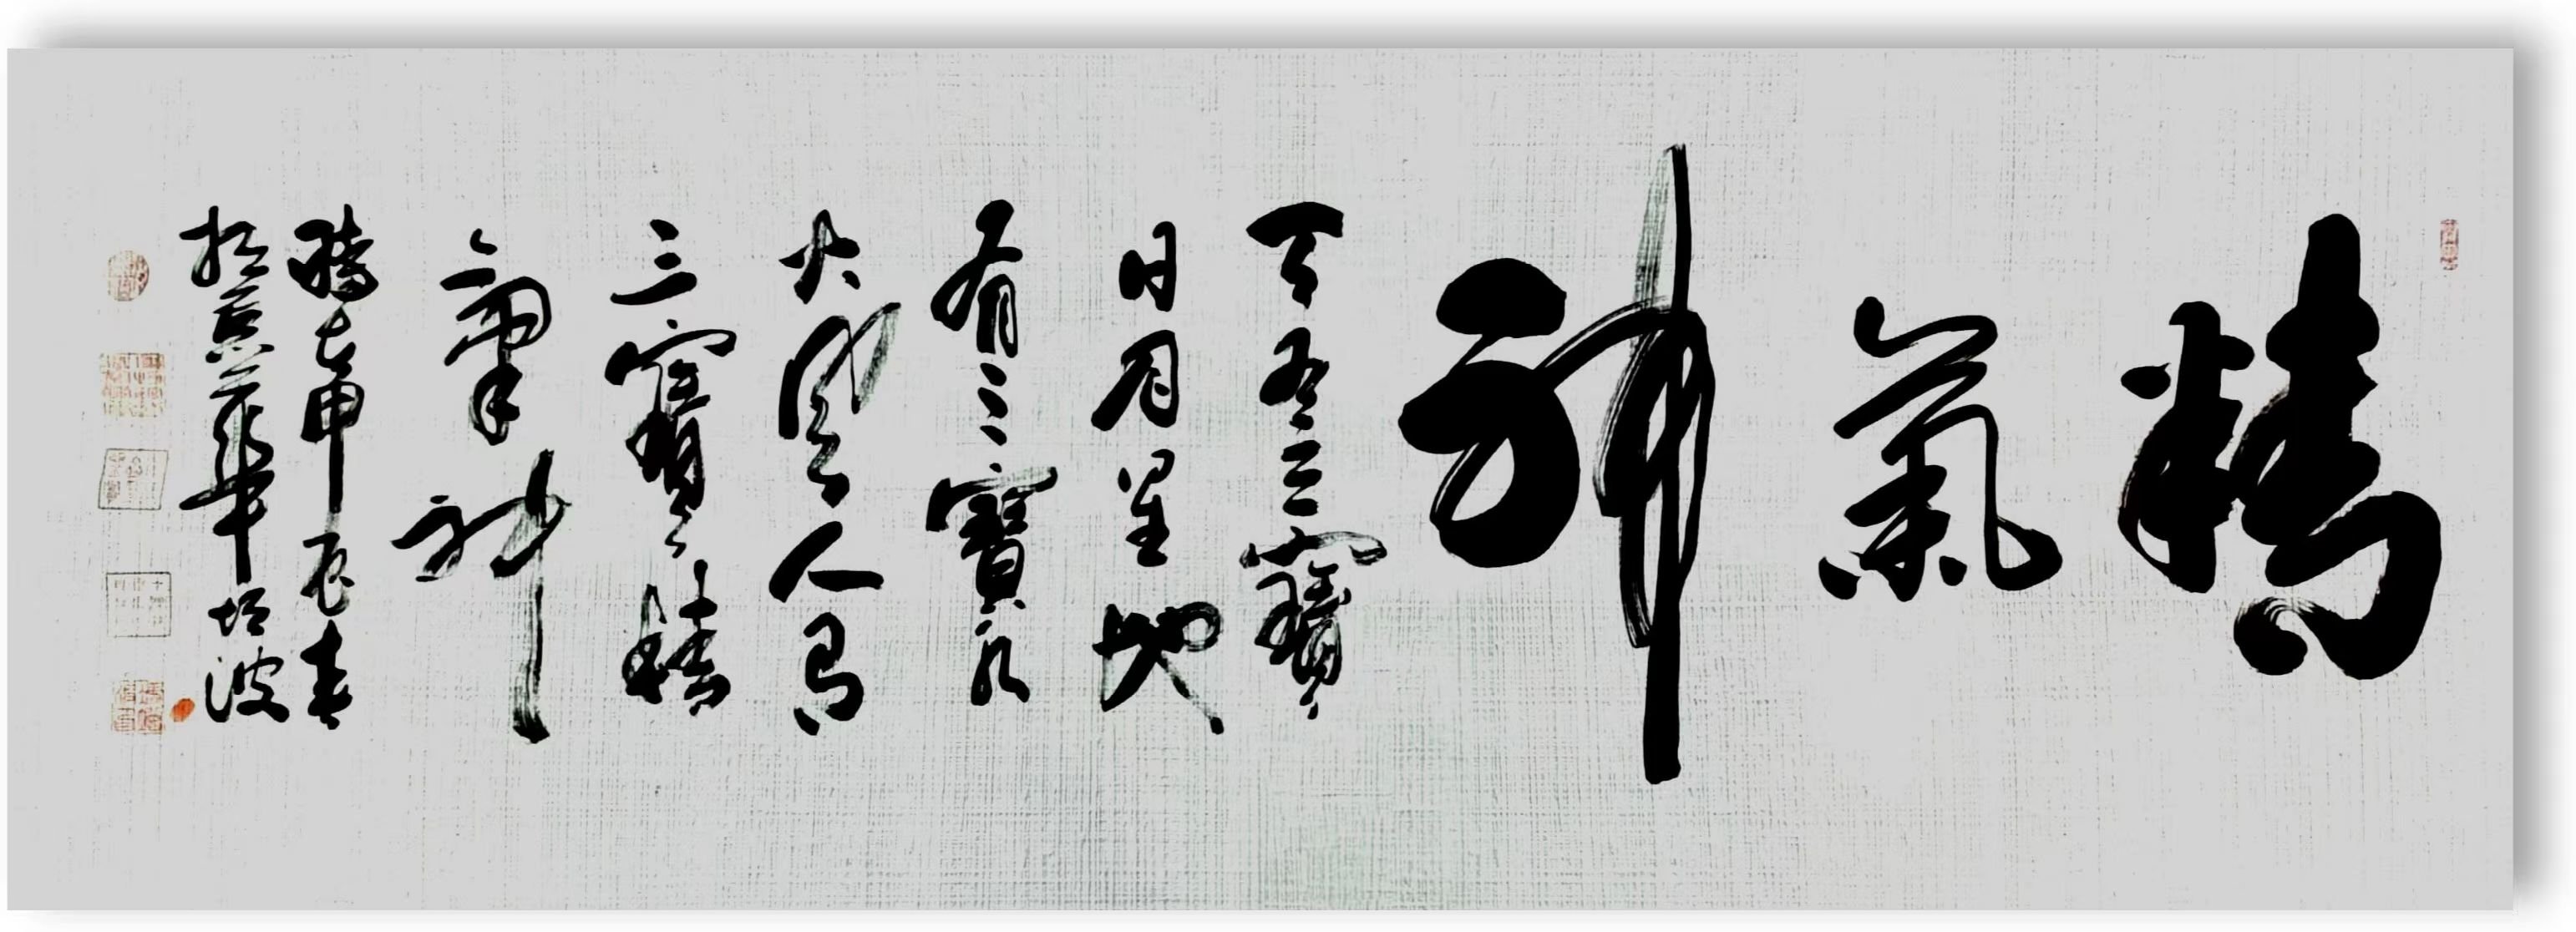 精氣神
天有三寶
日月星地
有三寶水
火風人有
三寶精
氣神
時在甲辰春
於京華坦波